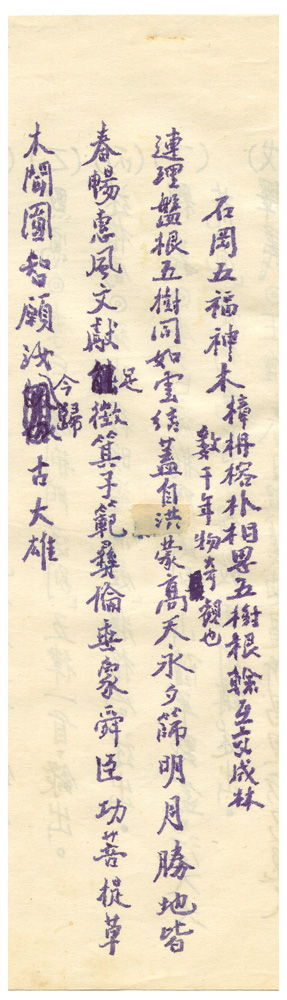 石岡五福神木
樟枏榕朴相思五樹根幹互交成林
數千年物奇觀也
連理盤根五樹同如雲結蓋自洪蒙高天永夕篩明月勝地皆
春暢惠風文獻足徵箕子範彝倫無舜臣功菩提草
木開圓智願汝今歸古大雄